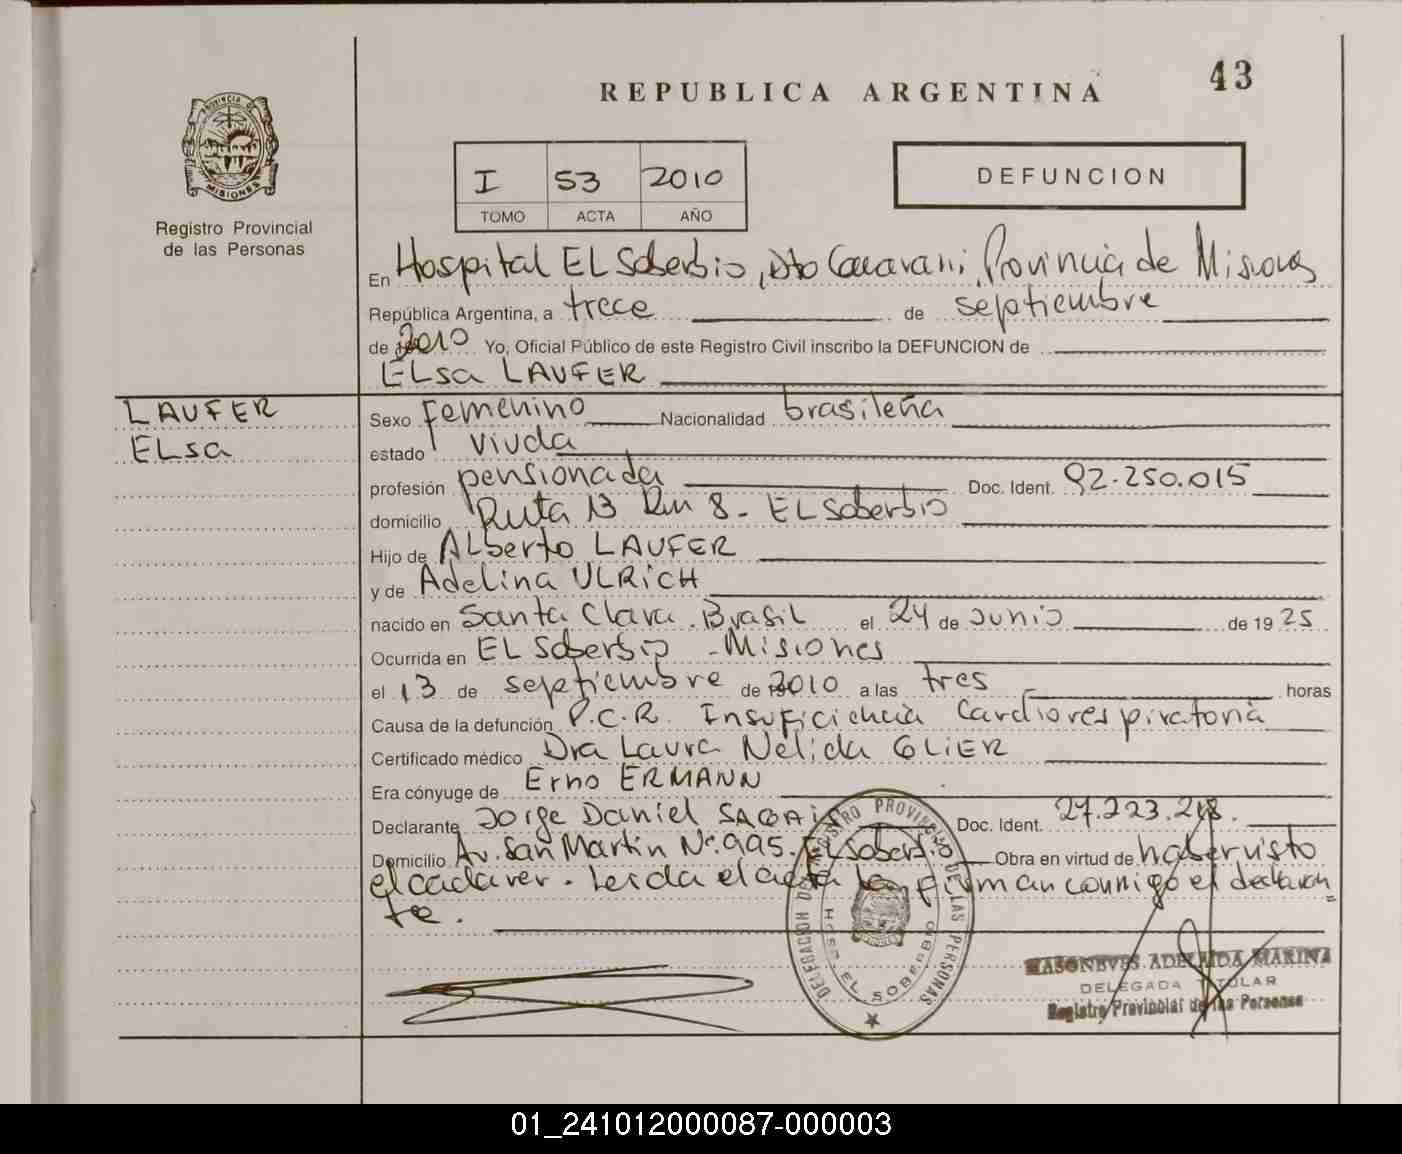 43
REPUBLICA ARGENTINA
PROVINCIA DE MISIONES
Registro Provincial
de las Personas
I 53 2010
TOMO ACTA AÑO
DEFUNCION
En Hospital EL Soberbio, Dto Provincia de Misiones
República Argentina, a trece de septiembre
de 2010 Yo, Oficial Público de este Registro Civil inscribo la DEFUNCION de
ELsa LAUFER
LAUFER
ELsa
Sexo femenino Nacionalidad brasileña
estado viuda
profesión pensionada Doc. Ident. 92.250.015
domicilio Ruta 13 Km 8 - EL Soberbio
Hijo de ALberto LAUFER
y de Adelina ULRiCH
nacido en Santa Clara. Brasil el 24 de Junio de 19 25
Ocurrida en EL Soberbio - Misiones
el 13 de septiembre de 2010 a las tres horas
Causa de la defunción P.C.R. Insuficiencia Cardiorespiratoria
Certificado médico Dra Laura Nelida GLIER
Era cónyuge de Erno ERMANN
Declarante Jorge Daniel Doc. Ident. 27.223.218.
Domicilio Av. San Martin Nº.995. EL Soberbio Obra en virtud de haber visto
el cadaver. Leida el acta la firman conmigo el declaran
te.
DELEGACION DEL REGISTRO PROVINCIAL DE LAS PERSONAS
HOSP. EL SOBERBIO
MASONEVES ADELAIDA MARINA
DELEGADA TITULAR
Registro Provincial de las Personas
01_241012000087-000003